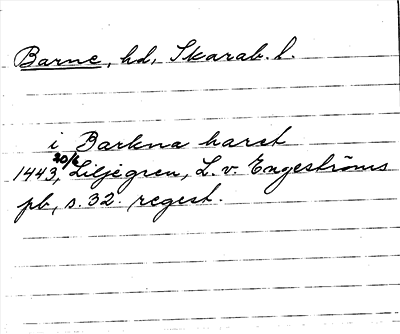 Barne, hd, Skarab. l.
i Barkna haret
1443 20/6, Liljegren, L. v. Engeströms
pb, s. 32. regest.